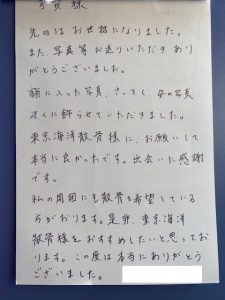 様
先日はお世話になりました。
また、写真等お送りいただきあり
がとうございました。
額に入った写真、さっそく、母の写真
近くに飾らせていただきました。
東京海洋散骨様に、お願いして
本当に良かったです。出会いに感謝
です。
私の周囲にも散骨を希望している
方がおります。是非、東京海洋
散骨様をおすすめしたいと思ってお
ります。この度は本当にありがとう
ございました。